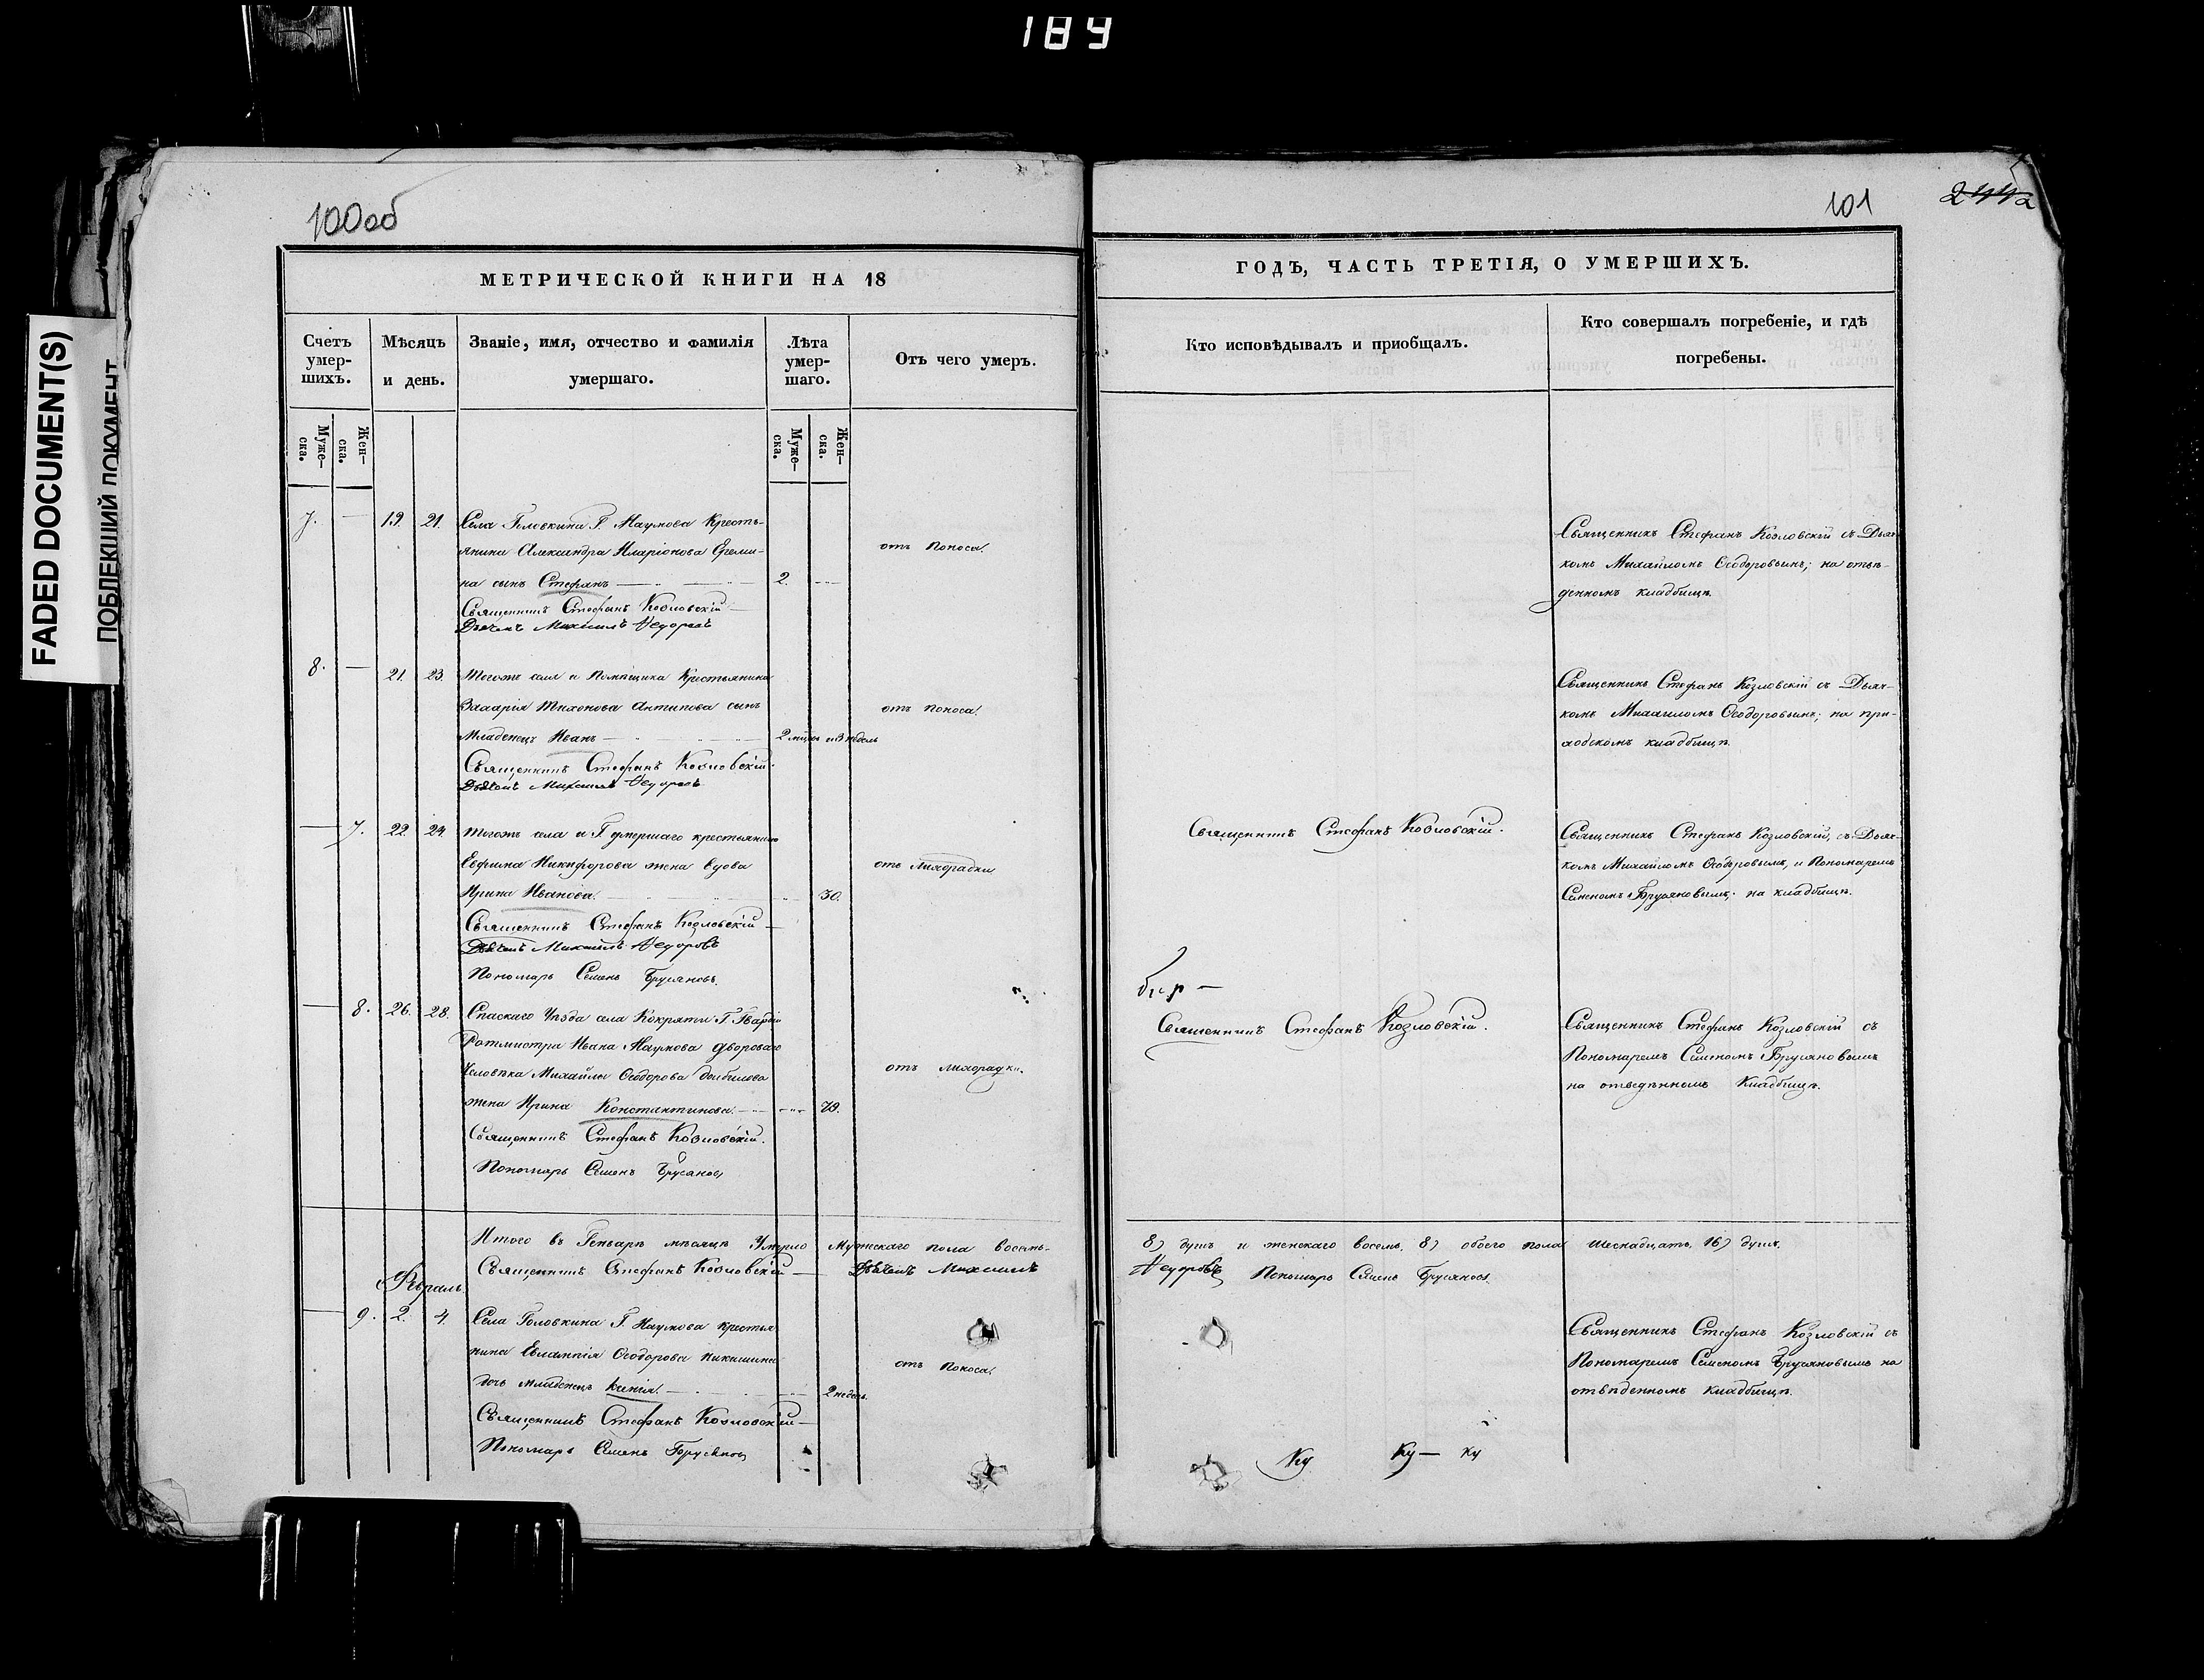 189
FADED DOCUMENT(S)
ПОБЛЕКШИЙ ДОКУМЕНТ
100об
МЕТРИЧЕСКОЙ КНИГИ НА 18
Счетъ умер-шихъ.
Мѣсяцъ и день.
Званіе, имя, отчество и фамилія умершаго.
Лѣта умер-шаго.
Отъ чего умеръ.
Муже-ска.
Жен-ска.
Муже-ска.
Жен-ска.
7. — 19. 21. Села Головкина Г. Наумова Кресть-
янина Александра Иларіонова Ереми-
отъ поноса.
на сынъ Стефанъ — 2.
Священникъ Стефанъ Козловскій
Дьячекъ Михаилъ Ѳедоровъ
8. — 21. 23. Тогожъ села и Помѣщика Крестьянина
Захарія Тихонова Антипова сынъ
отъ поноса.
Младенецъ Иванъ — 2 мѣсяца и 3 недель
Священникъ Стефанъ Козловскій.
Дьячекъ Михаилъ Ѳедоровъ
— 7. 22. 24. Тогожъ села и Г. умершаго крестьянина
Евфима Никифорова жена вдова
отъ Лихорадки
Ирина Иванова. — 30.
Священникъ Стефанъ Козловскій
Дьячекъ Михаилъ Ѳедоровъ
Пономарь Семенъ Брусяновъ.
— 8. 26. 28. Спаскаго Уѣзда села Кокряти Г. Гвардіи
Ротмистра Ивана Наумова двороваго
Человѣка Михайлы Ѳеодорова
отъ лихорадки.
жена Ирина Константинова. — 79.
Священникъ Стефанъ Козловскій.
Пономарь Семенъ Брусяновъ
Итого въ Генварѣ мѣсяцѣ Умерло Мужескаго пола восемь.
Священникъ Стефанъ Козловскій — Дьячекъ Михаилъ
Февраль.
— 9. 2. 4. Села Головкина Г. Наумова крестья
нина Евлампія Ѳеодорова Никишина
отъ поноса.
дочь младенецъ Ксенія. — 2 недель.
Священникъ Стефанъ Козловскій —
Пономарь Семенъ Брусяновъ
101
244а
ГОДЪ, ЧАСТЬ ТРЕТІЯ, О УМЕРШИХЪ.
Кто исповѣдывалъ и приобщалъ.
Кто совершалъ погребеніе, и гдѣ погребены.
Священникъ Стефанъ Козловскій съ Дьяч-
комъ Михайломъ Ѳеодоровымъ; на отве-
денномъ кладбищѣ.
Священникъ Стефанъ Козловскій съ Дьяч-
комъ Михайломъ Ѳеодоровымъ; на при-
ходскомъ кладбищѣ.
Священникъ Стефанъ Козловскій.
Священникъ Стефанъ Козловскій, съ Дьяч-
комъ Михайломъ Ѳеодоровымъ, и Пономаремъ
Семеномъ Брусяновымъ; на кладбищѣ.
Священникъ Стефанъ Козловскій.
Священникъ Стефанъ Козловскій съ
Пономаремъ Семеномъ Брусяновымъ
на отведенномъ Кладбищѣ.
8) душъ и женскаго восемь, 8) обоего пола шеснадцать, 16) душъ.
Ѳедоровъ Пономарь Семенъ Брусяновъ.
Священникъ Стефанъ Козловскій съ
Пономаремъ Семеномъ Брусяновымъ на
отвѣденномъ кладбищѣ.
Ку Ку — ку